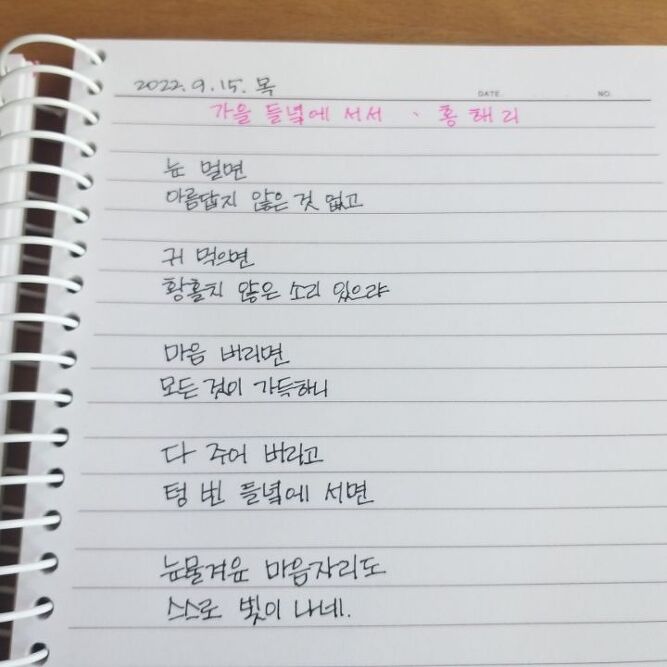 2022.9.15.목
DATE. NO.
가을 들녘에 서서 · 홍해리
눈 멀면
아름답지 않은 것 없고
귀 먹으면
황홀치 않은 소리 있으랴
마음 버리면
모든 것이 가득하니
다 주어 버리고
텅 빈 들녘에 서면
눈물겨운 마음자리도
스스로 빛이 나네.